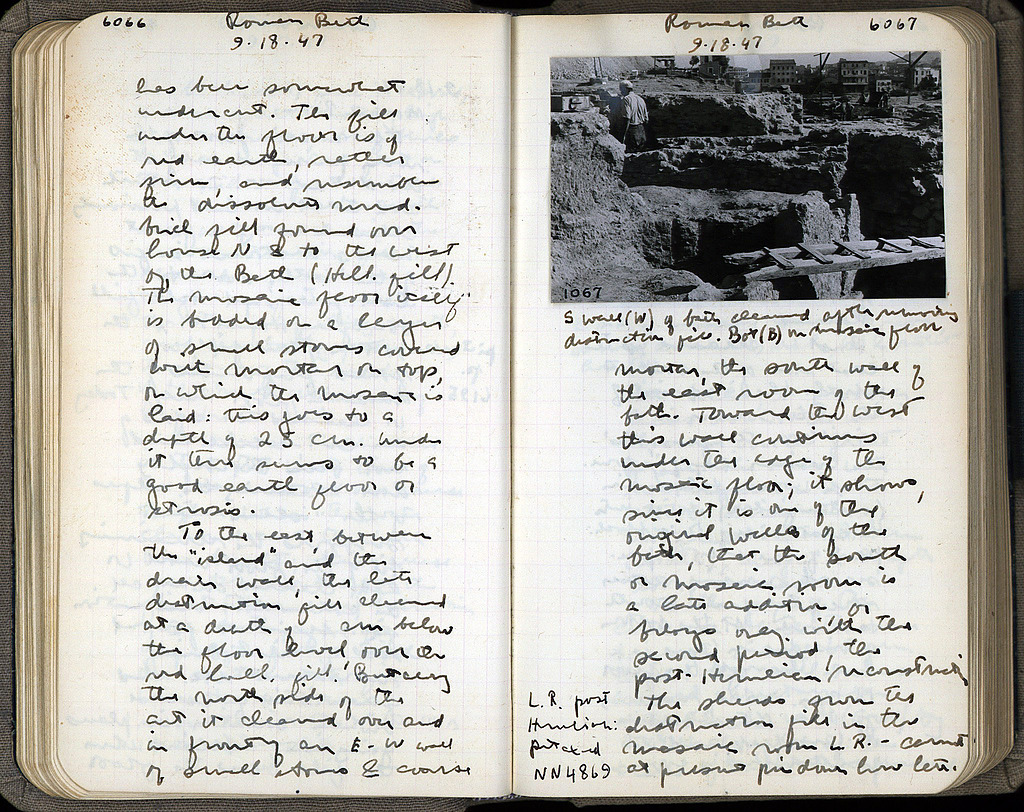 6066 Roman Bath
9.18.47
has been somewhat
undercut. The fill
under the floor is of
red earth, rather
firm, and resembles
the dissolved mud.
brick fill found over
house N & to the west
of the Bath (Hell. fill).
The mosaic floor itself
is bedded on a layer
of small stones covered
with mortar on top,
on which the mosaic is
laid: this goes to a
depth of 25 cm. Under
it there seems to be a
good earth floor or
strosis.
To the east, between
the "island" and the
drain wall, the late
destruction fill cleared
at a depth of cm below
the floor level over
red hell. fill. But along
the north side of the
cut it cleared over and
in front of an E-W wall
of small stones & coarse
Roman Bath 6067
9.18.47
1067
S wall (W) of bath cleared after removing
destruction fill. Box (B) on mosaic floor
mortar, the south wall of
the east room of the
bath. Toward the west
this wall continues
under the edge of the
mosaic floor; it shows,
since it is one of the
original walls of the
bath, that the south
or mosaic room is
a late addition or
belongs only with the
second period, the
post-Herulian reconstruction
The sherds from the
destruction fill in the
mosaic room L.R. - cannot
at present pin down how late.
L.R. post
Herulian:
NN4869